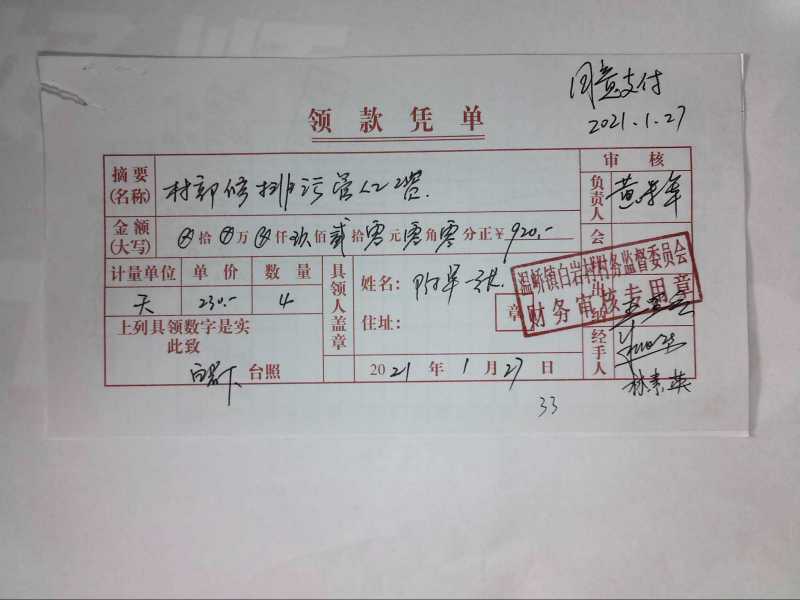 同意支付
2021.1.27
领款凭单
摘要(名称) 村部修排污管人工费.
审核
负责人 黄
金额(大写) ⊗拾⊗万⊗仟玖佰贰拾零元零角零分正¥920.-
会
计量单位 单价 数量
天 230.- 4
具领人盖章
姓名:
住址:
章
温峤镇白岩村财务监督委员会
财务审核专用章
出纳
上列具领数字是实
此致
白岩下 台照
2021年1月27日
经手人
林素英
33